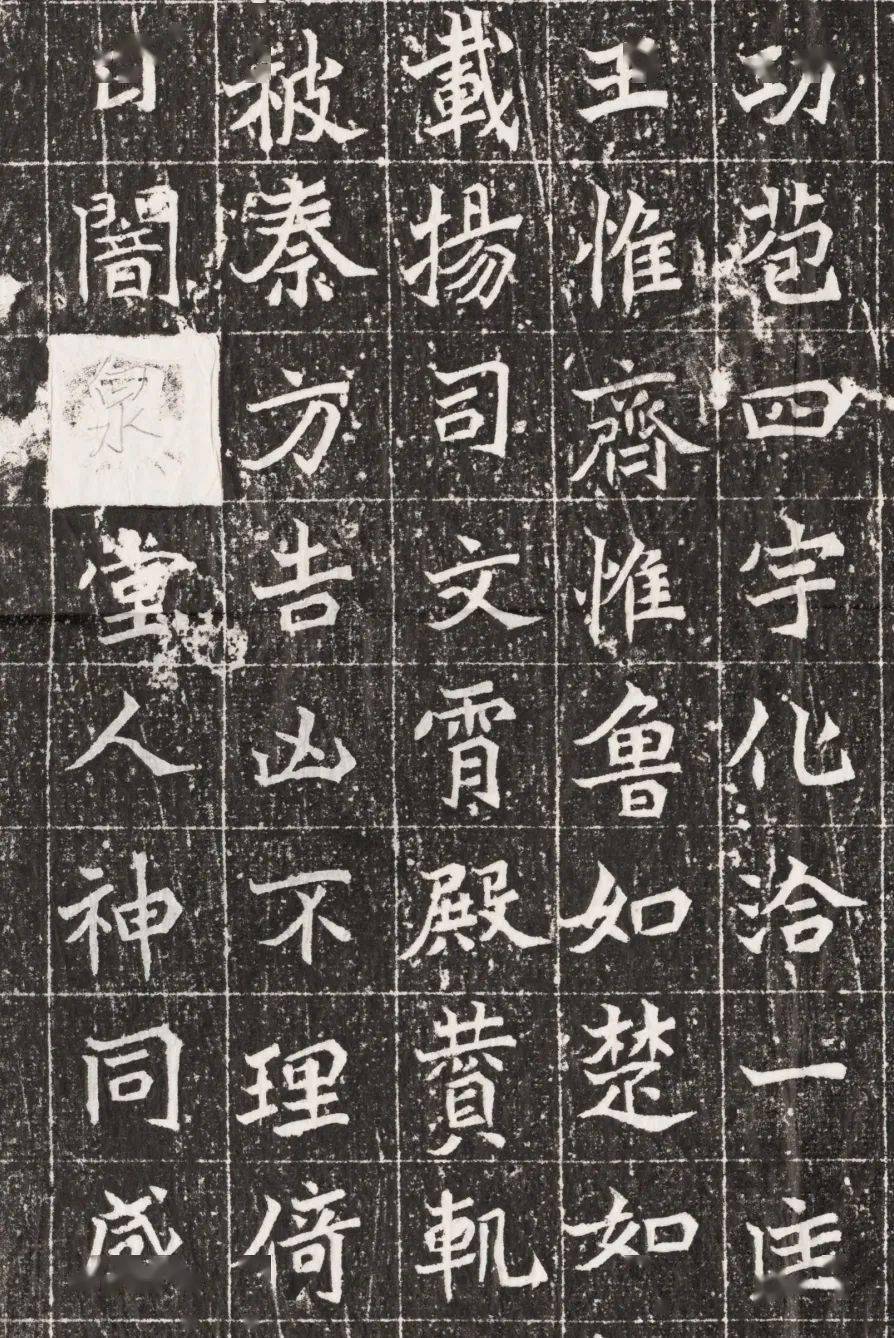 功苞四宇化洽一匡
王惟齊惟魯如楚如
載揚司文霄殿賛軌
被秦方告凶不理倚
日闇泉堂人神同